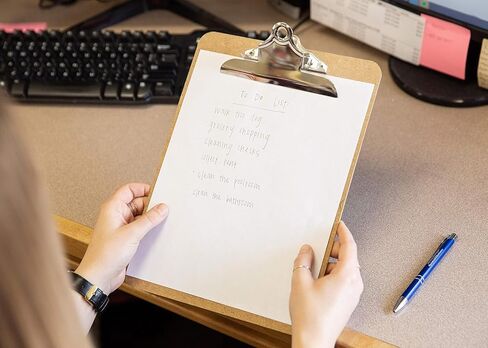 To Do List
walk the dog
grocery shopping
cleaning checks
collect rent
clean the
clean the bathroom